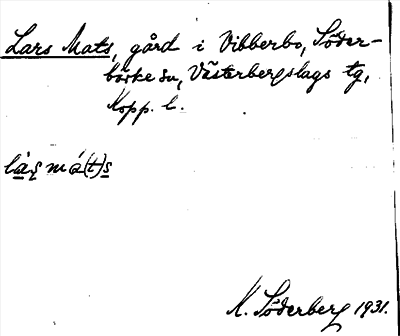 Lars Mats, gård i Vibberbo, Söder-
bärke sn, Västerbergslags tg,
Kopp. l.
làs má(t)s
K. Söderberg 1931.